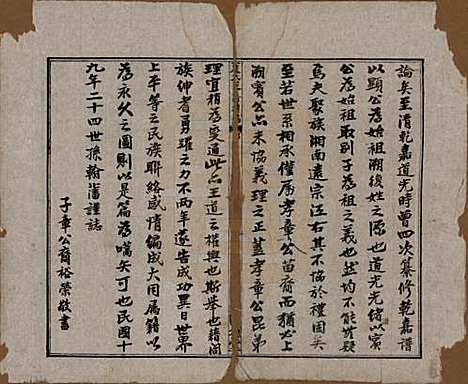 論矣至清乾嘉道光時曾四次纂修乾嘉譜
以顯公為始祖溯復姓之源也道光光緒以實
公為始祖取別子為祖之義也然均不能無疑
焉夫聚族湘南遠宗江右其不協於禮固矣
至若世系相承僅屬孝章公苗裔而猶必上
溯實公亦未協義理之正蓋孝章公昆弟
理宜稍為變通此亦王道之權輿也斯舉也藉闔
族紳耆勇躍之力不兩年遂告成功異日世界
上平等之民族聯絡感情編成大同屬籍以
為永久之圖則以是篇為嚆矢可也民國十
九年二十四世孫翰藩謹誌
子章公裔裕榮敬書